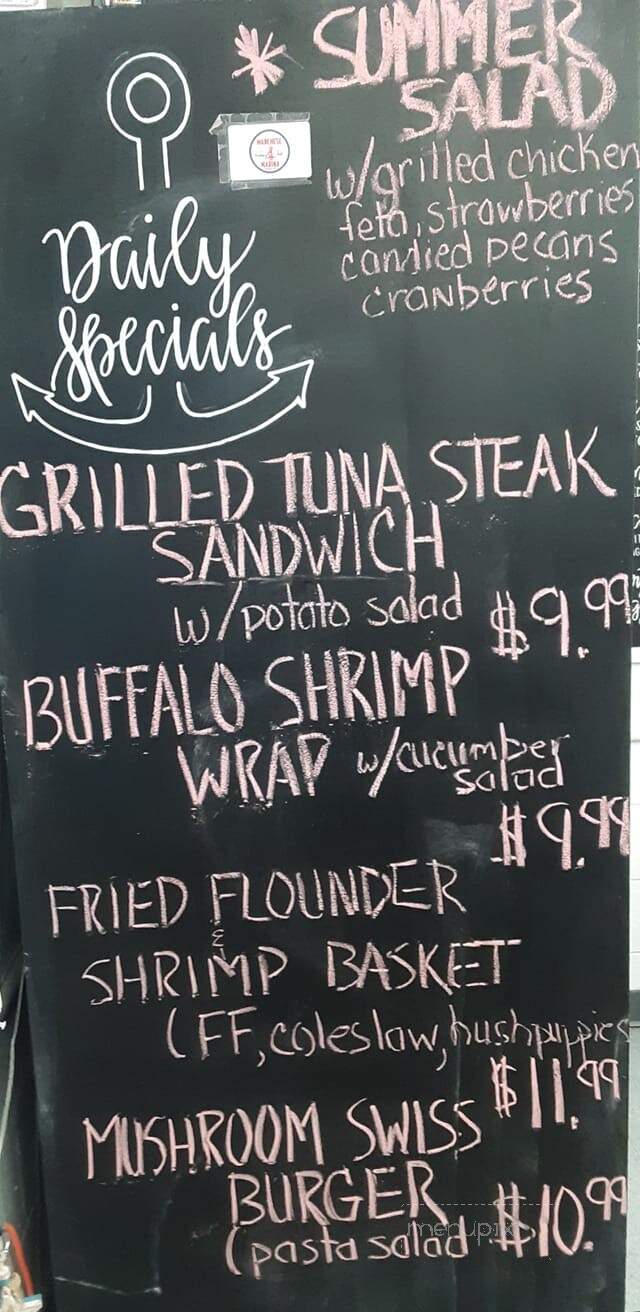 * SUMMER
SALAD
w/grilled chicken
feta, strawberries
candied pecans
cranberries
Daily
Specials
GRILLED TUNA STEAK
SANDWICH
w/potato salad $9.99
BUFFALO SHRIMP
WRAP w/cucumber
salad
$9.99
FRIED FLOUNDER
&
SHRIMP BASKET
(FF, coleslaw, hushpuppies
$11.99
MUSHROOM SWISS
BURGER
(pasta salad $10.99
menupix